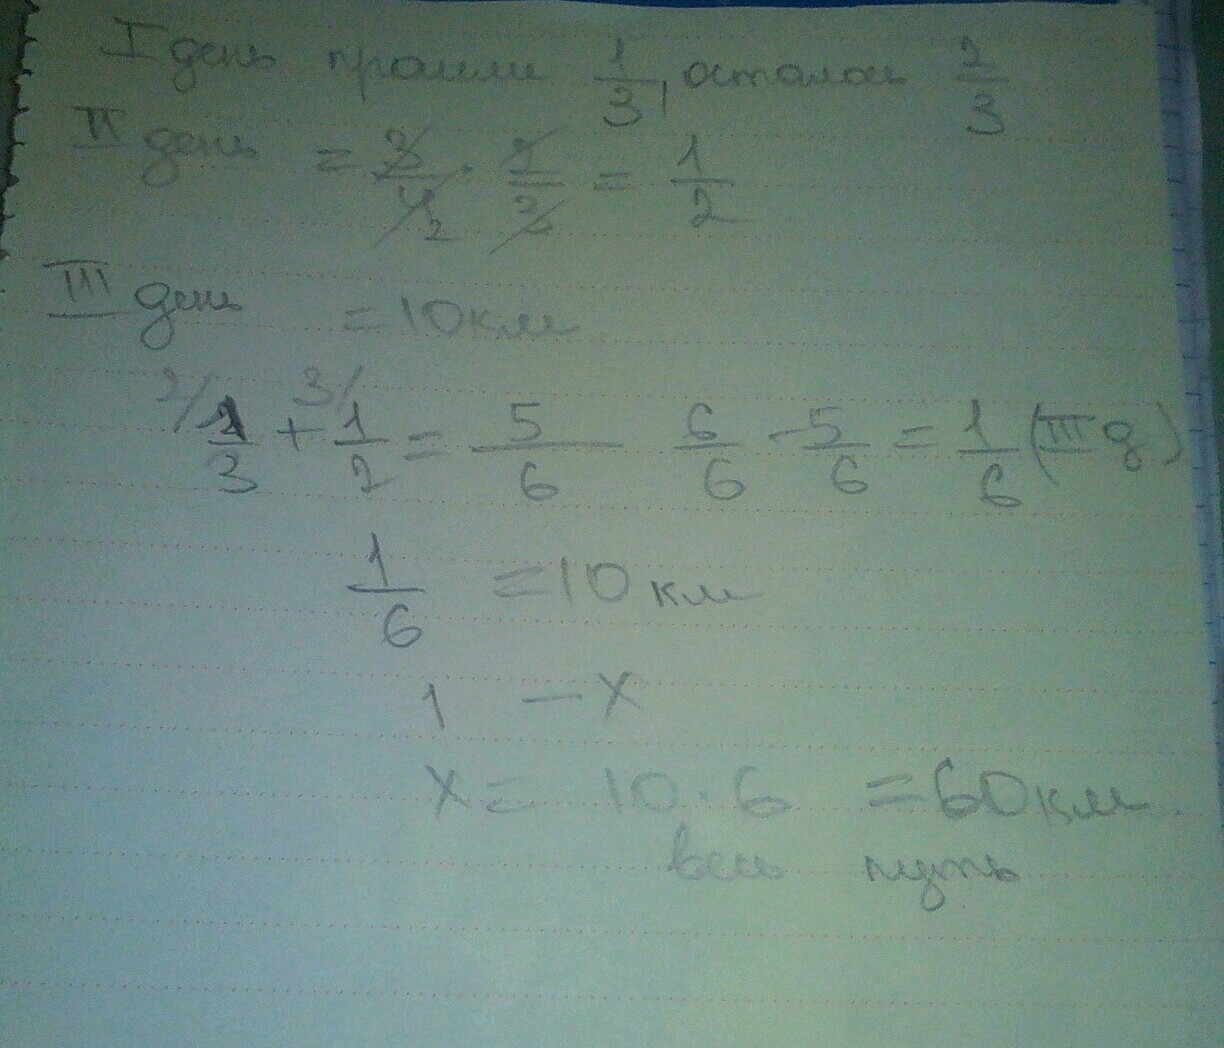 I день прошли 1/3, осталось 2/3
II день = 3/4 2 · 2/3 = 1/2
III день = 10 км
2/ 1/3 + 3/ 1/2 = 5/6 6/6 - 5/6 = 1/6 (III д)
1/6 = 10 км
1 — x
x = 10 · 6 = 60 км
весь путь